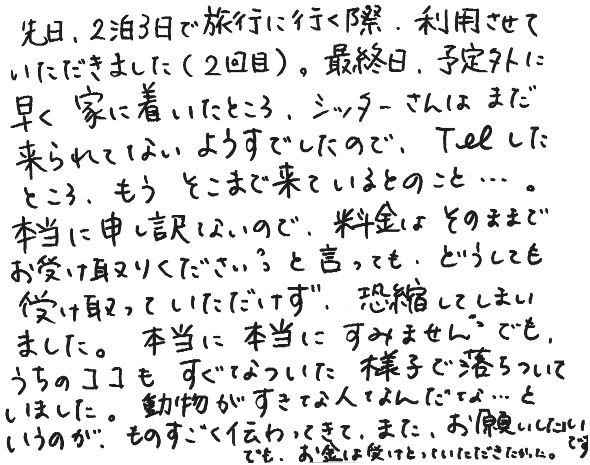 先日、2泊3日で旅行に行く際、利用させて
いただきました(2回目)。最終日、予定外に
早く家に着いたところ、シッターさんはまだ
来られてないようすでしたので、Telした
ところ、もうそこまで来ているとのこと…。
本当に申し訳ないので、料金はそのままで
お受け取りください。と言っても、どうしても
受け取っていただけず、恐縮してしまい
ました。本当に本当にすみません。でも、
うちのココもすぐなついた様子で落ちついて
いました。動物がすきな人なんだな…と
いうのが、ものすごく伝わってきて、また、お願いしたいです
でも、お金は受けとっていただきたかった。